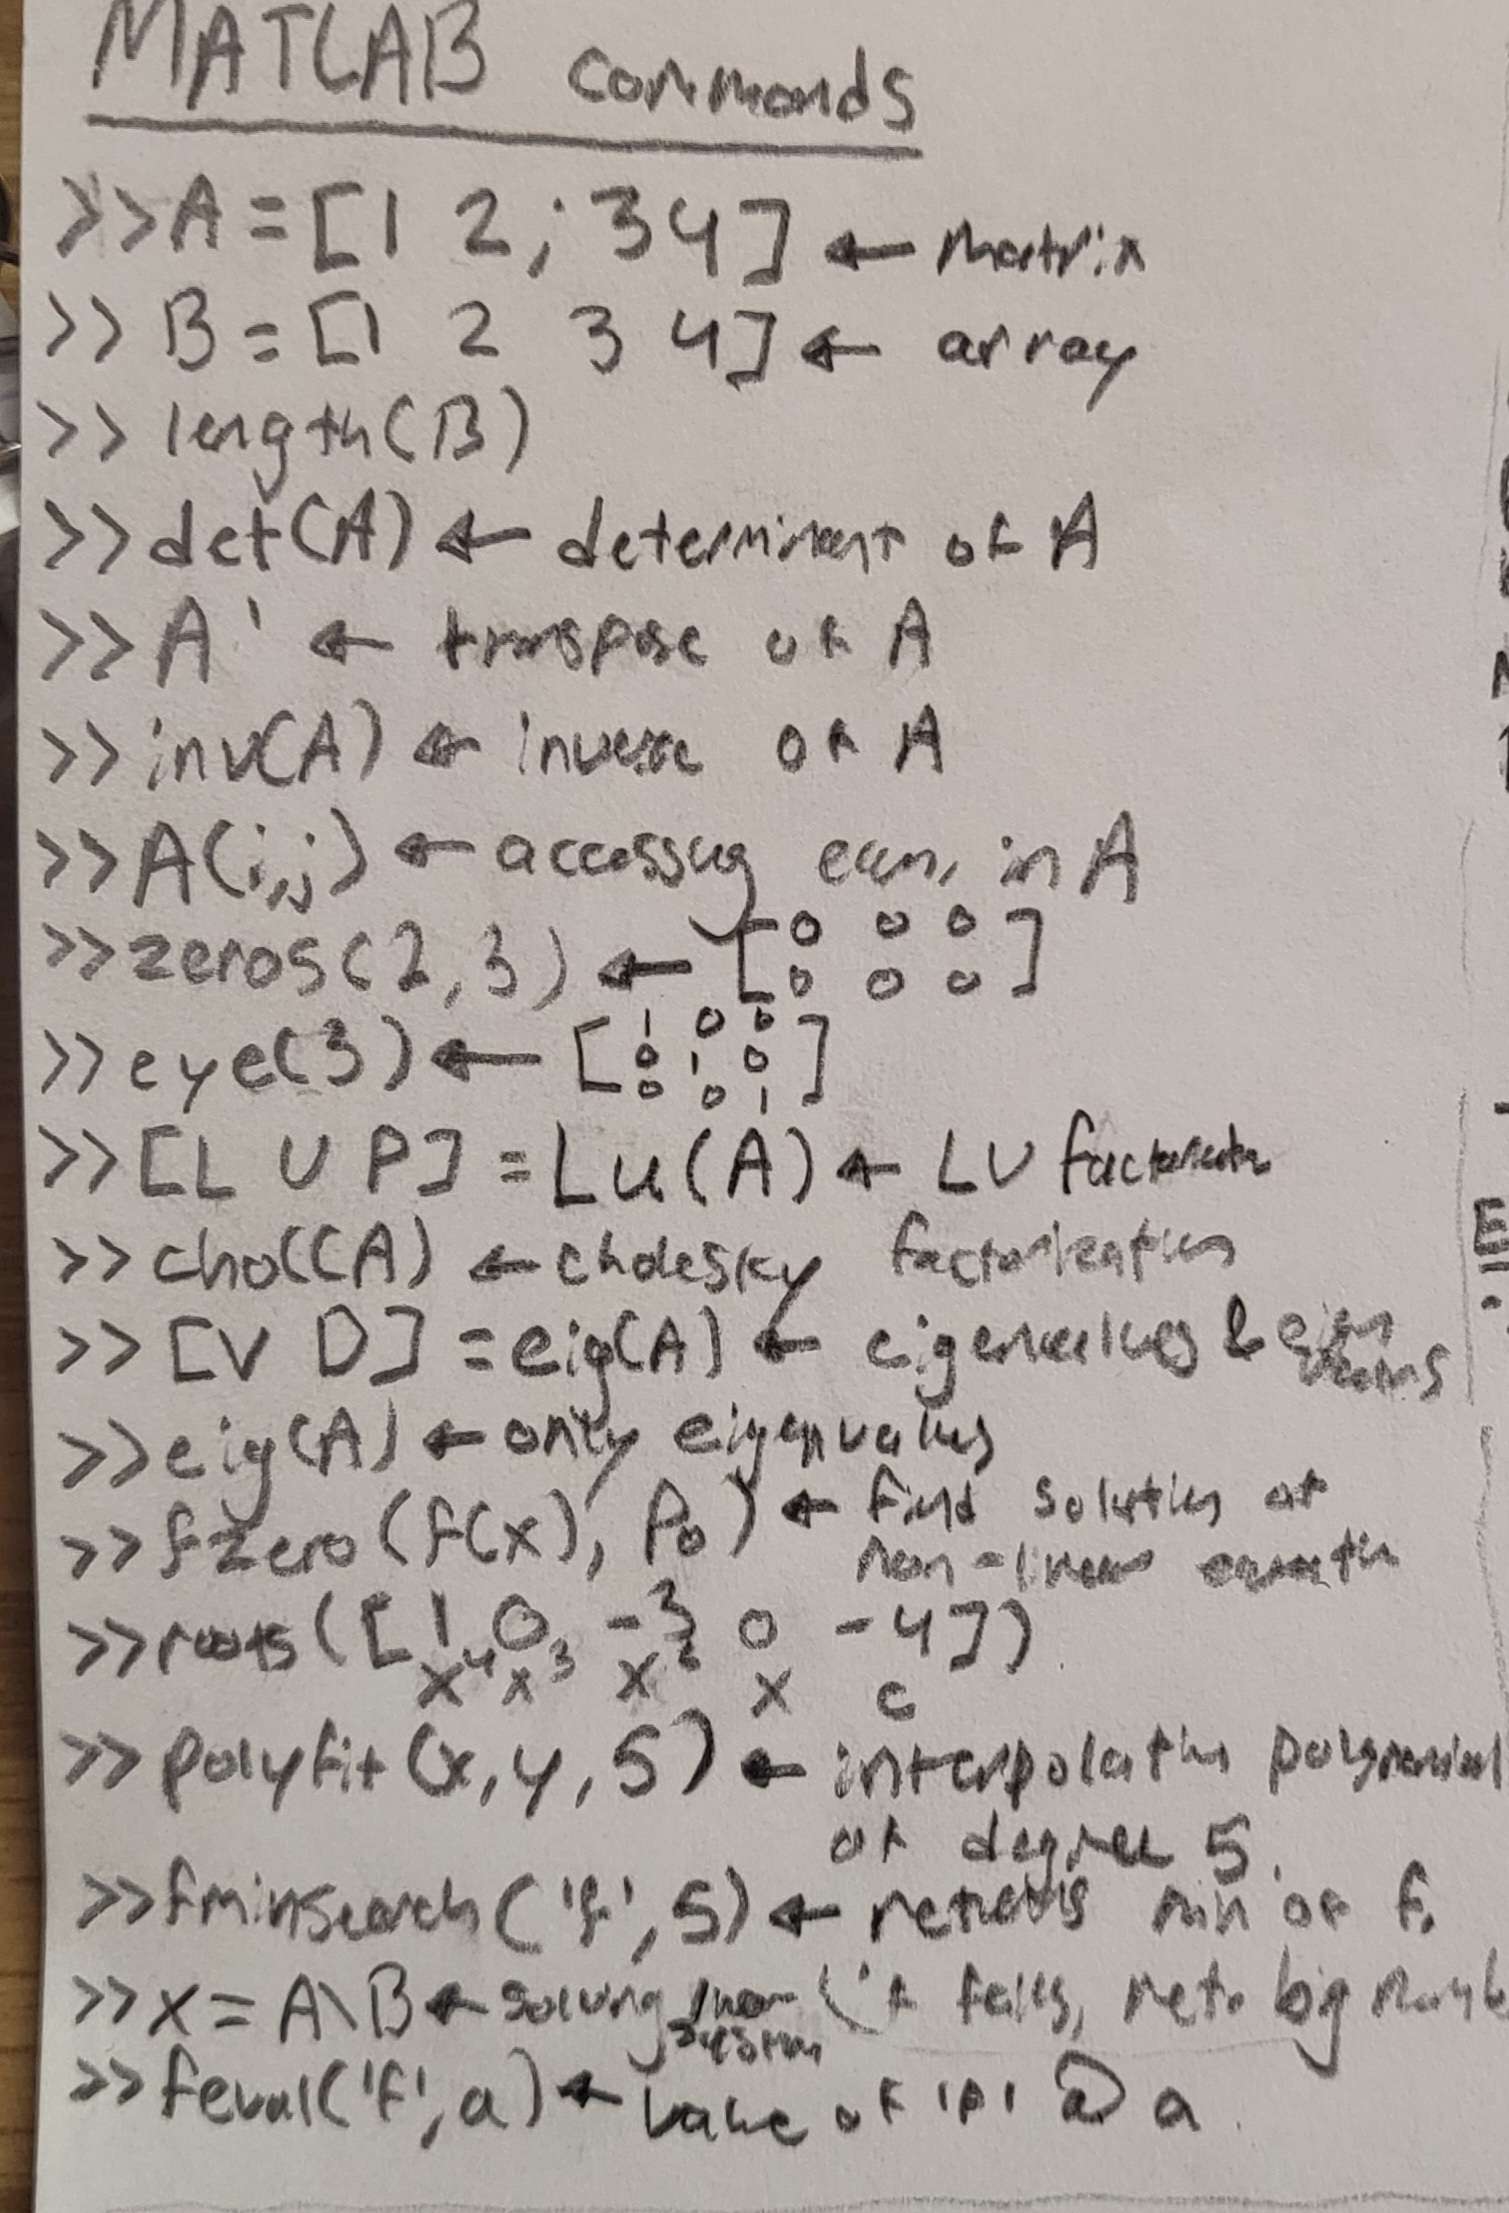 MATLAB commands
>> A = [1 2 ; 3 4] ← matrix
>> B = [1 2 3 4] ← array
>> length(B)
>> det(A) ← determinant of A
>> A' ← transpose of A
>> inv(A) ← inverse of A
>> A(i,j) ← accessing in A
>> zeros(2,3) ← [0 0 0
0 0 0]
>> eye(3) ← [1 0 0
0 1 0
0 0 1]
>> [L U P] = Lu(A) ← LU factorization
>> chol(A) ← cholesky factorization
>> [V D] = eig(A) ← eigenvalues & eigen
vectors
>> eig(A) ← only eigenvalues
>> fzero(f(x), P₀) ← find solution of
non-linear equation
>> roots([1 0 -3 0 -4])
x⁴ x³ x² x c
>> polyfit(x,y,5) ← interpolation polynomial
of degree 5.
>> fminsearch('f',5) ← returns min of f.
(if fails, ret. big numb
>> x = A\B ← solving linear
system
>> feval('f',a) ← value of 'f' @ a.
E